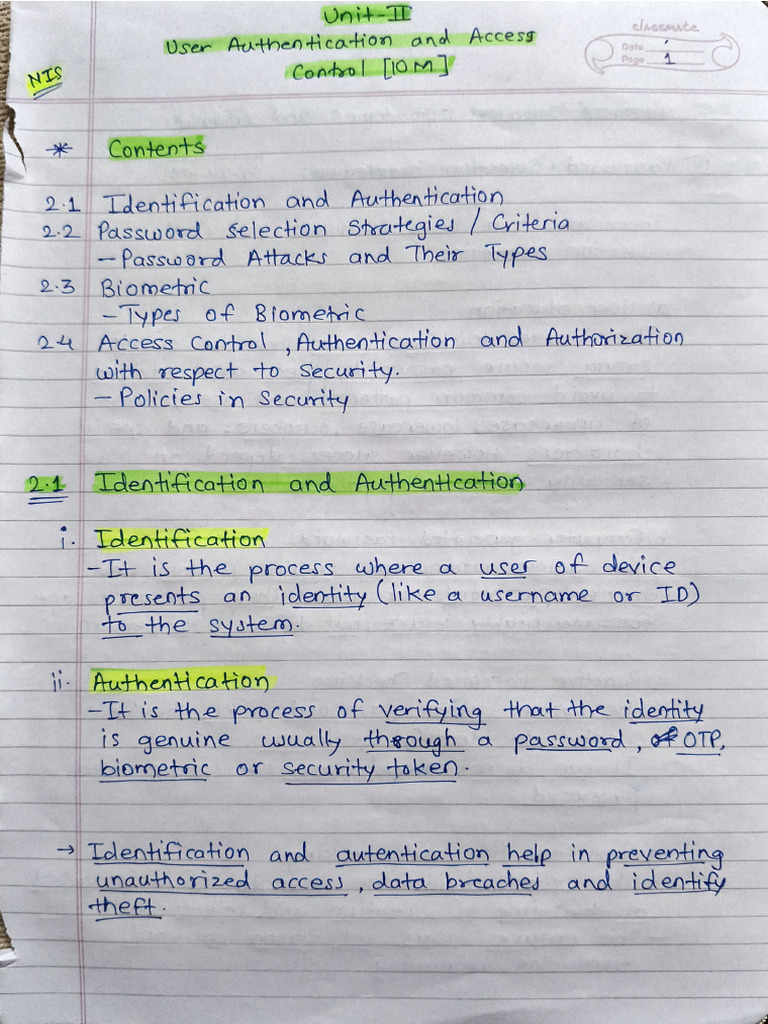 Unit-II
User Authentication and Access
Control [10M]
NIS
classmate
Date
Page 1
* Contents
2.1 Identification and Authentication
2.2 Password Selection Strategies / Criteria
- Password Attacks and Their Types
2.3 Biometric
- Types of Biometric
2.4 Access Control, Authentication and Authorization
with respect to Security.
- Policies in Security
2.1 Identification and Authentication
i. Identification
- It is the process where a user of device
presents an identity (like a username or ID)
to the system.
ii. Authentication
- It is the process of verifying that the identity
is genuine wually through a password, OTP,
biometric or security token.
→ Identification and autentication help in preventing
unauthorized access, data breaches and identify
theft.